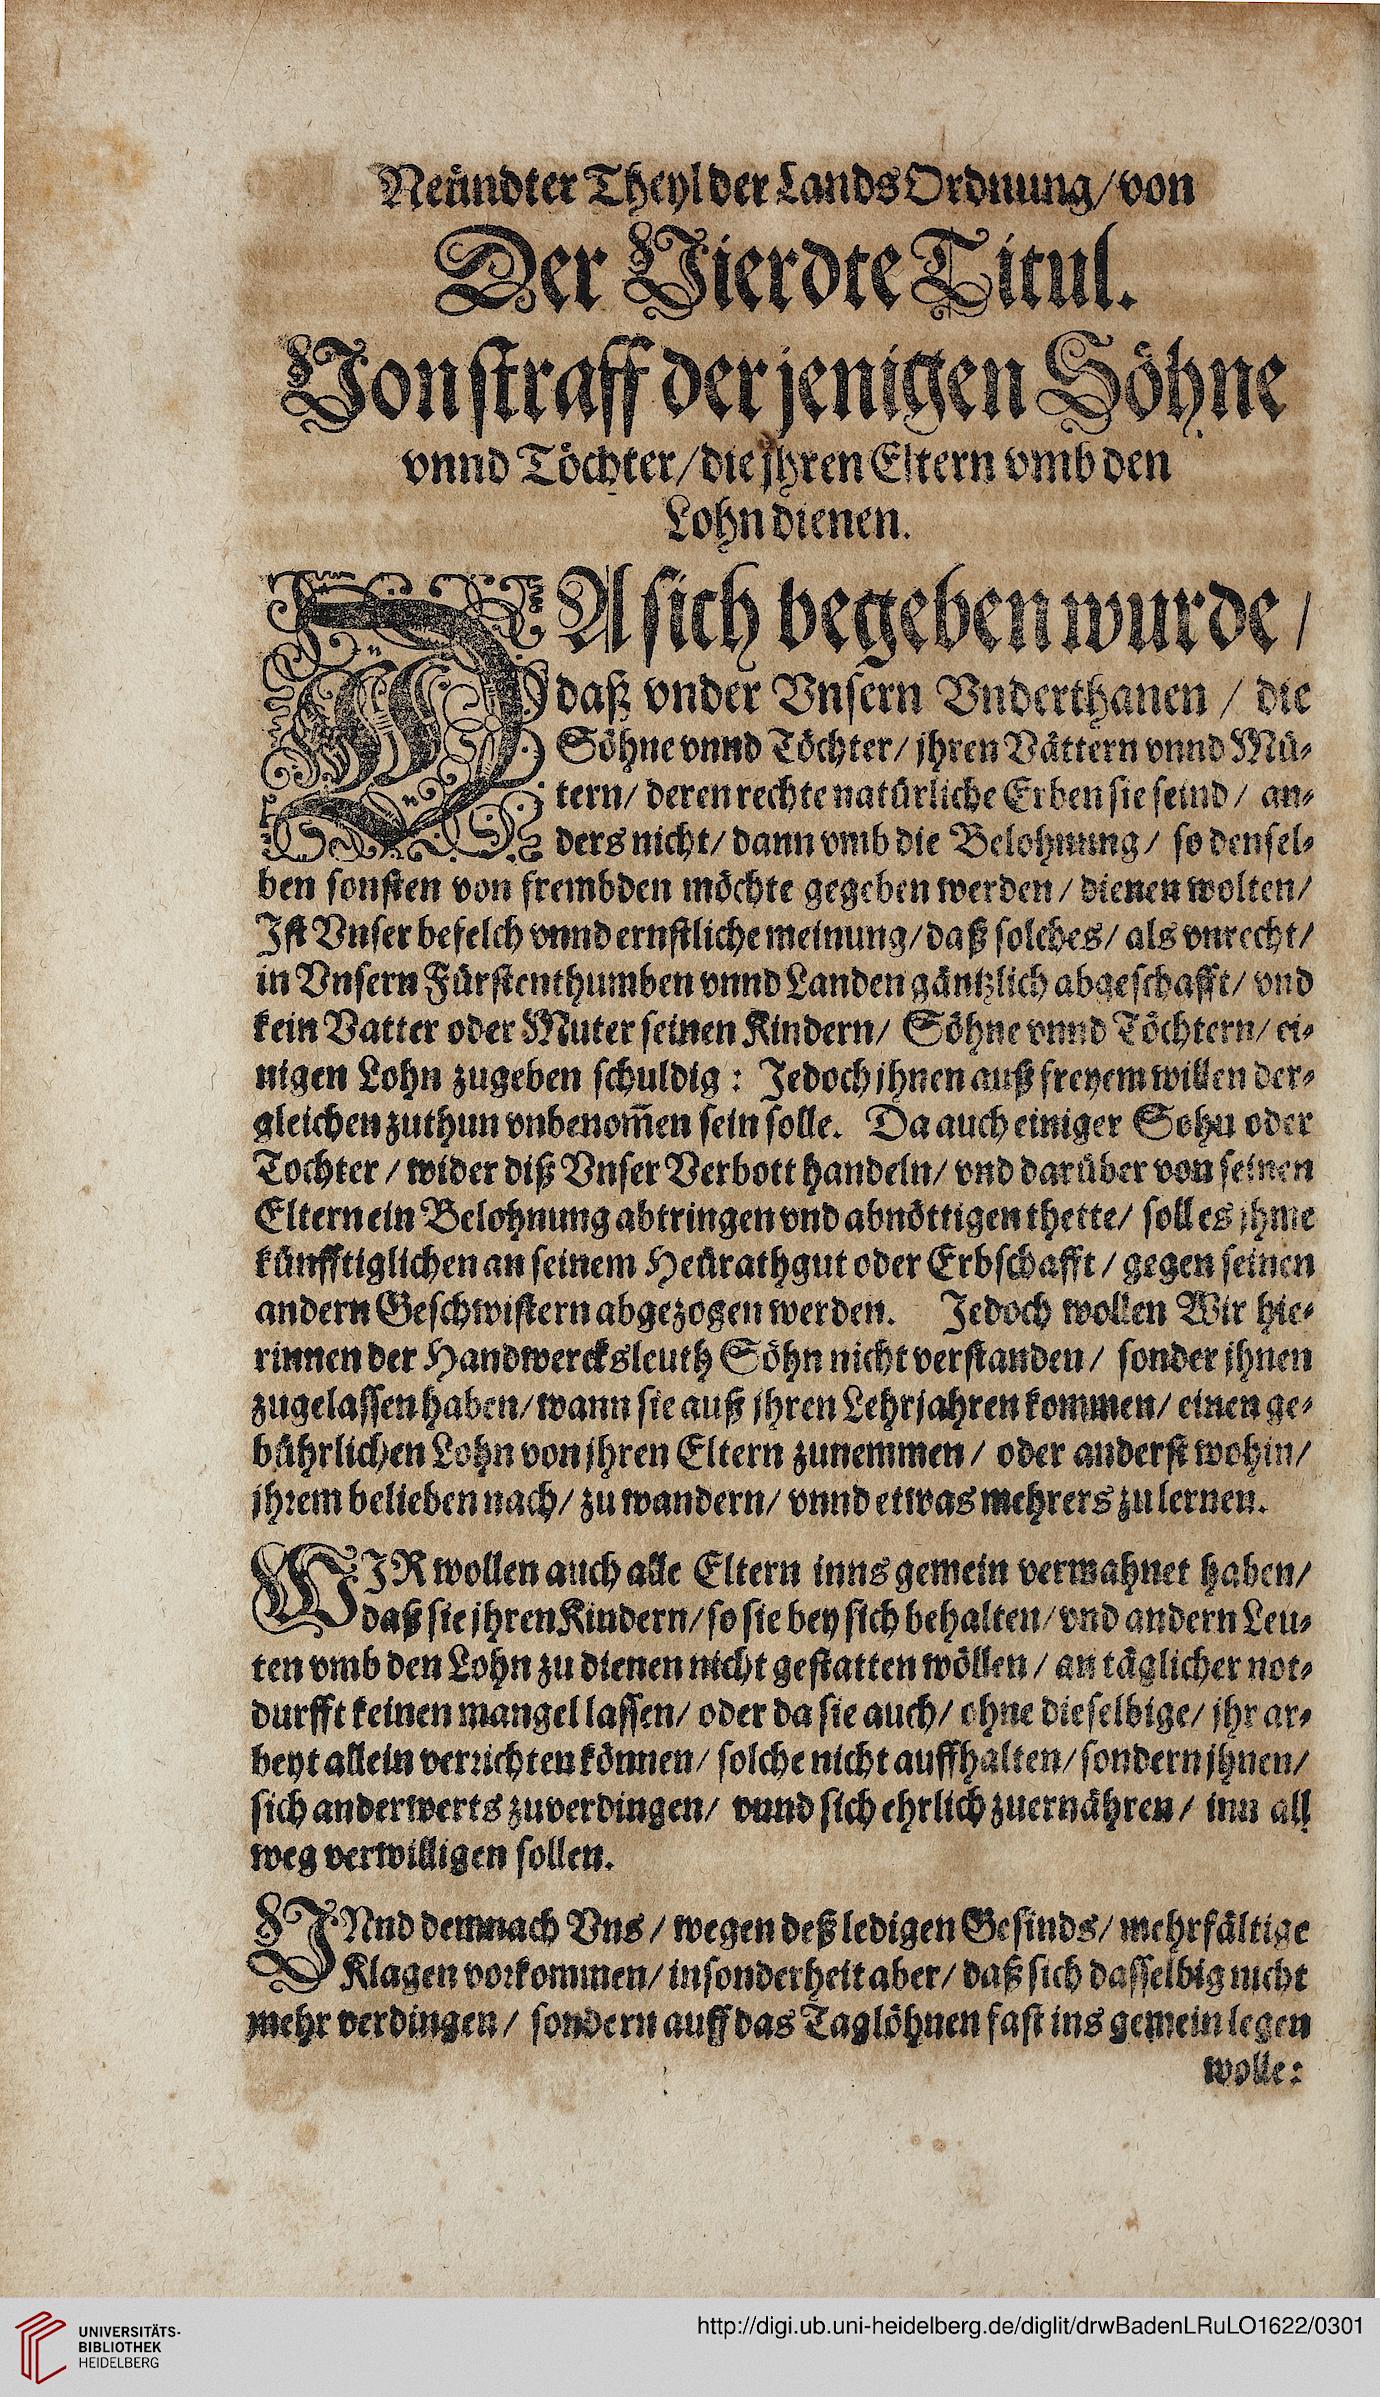 Neundter Theyl der LandsOrdnung/ von
Der Vierdte Titul.
Von straff der jenigen Söhne
vnnd Töchter/ die jhren Eltern vmb den
Lohn dienen.
DA sich begeben wurde /
daß vnder Vnsern Vnderthanen / die
Söhne vnnd Töchter/ jhren Vättern vnnd Mü-
tern/ deren rechte natürliche Erben sie seind / an-
ders nicht/ dann vmb die Belohnung/ so densel-
ben sonsten von frembden möchte gegeben werden/ dienen wolten/
Ist Vnser befelch vnnd ernstliche meinung/ daß solches/ als vnrecht/
in Vnsern Fürstenthumben vnnd Landen gäntzlich abgeschafft/ vnd
kein Vatter oder Muter seinen Kindern/ Söhne vnnd Töchtern/ ei-
nigen Lohn zugeben schuldig : Jedoch jhnen auß freyem willen der-
gleichen zuthun vnbenom̃en sein solle. Da auch einiger Sohn oder
Tochter / wider diß Vnser Verbott handeln/ vnd darüber von seinen
Eltern ein Belohnung abtringen vnd abnöttigen thette/ soll es jhme
künfftiglichen an seinem Heürathgut oder Erbschafft / gegen seinen
andern Geschwistern abgezogen werden. Jedoch wollen Wir hie-
rinnen der Handwercksleuth Söhn nicht verstanden / sonder jhnen
zugelassen haben/ wann sie auß jhren Lehrjahren kommen/ einen ge-
bührlichen Lohn von jhren Eltern zunemmen / oder anderst wohin/
jhrem belieben nach/ zu wandern/ vnnd etwas mehrers zu lernen.
WIR wollen auch alle Eltern inns gemein vermahnet haben/
daß sie jhren Kindern/ so sie bey sich behalten/ vnd andern Leu-
ten vmb den Lohn zu dienen nicht gestatten wöllen / an täglicher not-
durfft keinen mangel lassen/ oder da sie auch/ ohne dieselbige/ jhr ar-
beyt allein verrichten können/ solche nicht auffhalten/ sondern jhnen/
sich anderwerts zuverdingen/ vnnd sich ehrlich zuernähren / inn all
weg verwilligen sollen.
VNnd demnach Vns / wegen deß ledigen Gesinds/ mehrfältige
Klagen vorkommen/ insonderheit aber/ daß sich dasselbig nicht
mehr verdingen / sondern auff das Taglöhnen fast ins gemein legen
wolle:
UNIVERSITÄTS-
BIBLIOTHEK
HEIDELBERG
http://digi.ub.uni-heidelberg.de/diglit/drwBadenLRuLO1622/0301